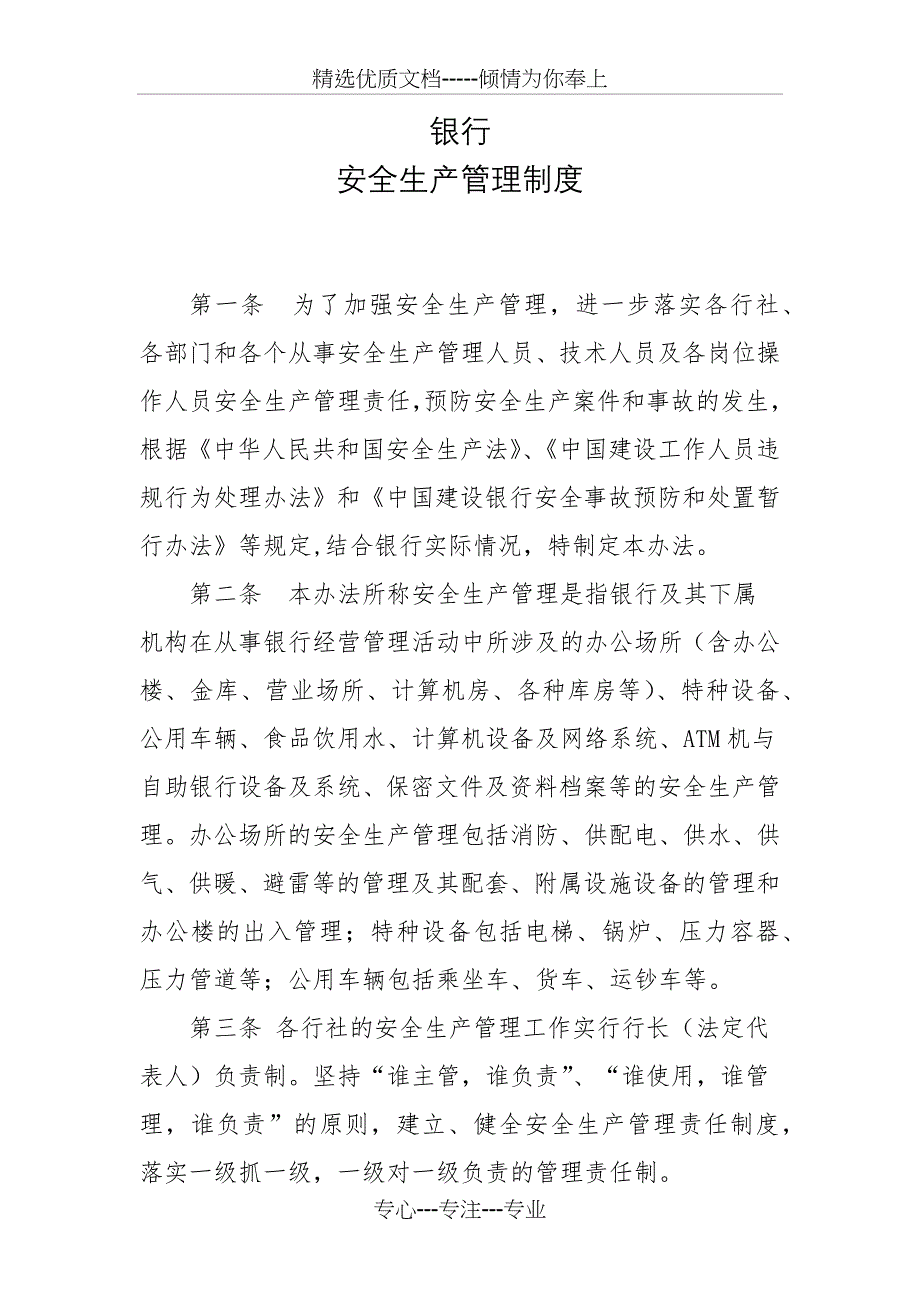 精选优质文档-----倾情为你奉上
银行
安全生产管理制度
第一条　为了加强安全生产管理，进一步落实各行社、
各部门和各个从事安全生产管理人员、技术人员及各岗位操
作人员安全生产管理责任,预防安全生产案件和事故的发生，
根据《中华人民共和国安全生产法》、《中国建设工作人员违
规行为处理办法》和《中国建设银行安全事故预防和处置暂
行办法》等规定,结合银行实际情况，特制定本办法。
第二条　本办法所称安全生产管理是指银行及其下属
机构在从事银行经营管理活动中所涉及的办公场所（含办公
楼、金库、营业场所、计算机房、各种库房等）、特种设备、
公用车辆、食品饮用水、计算机设备及网络系统、ATM 机与
自助银行设备及系统、保密文件及资料档案等的安全生产管
理。办公场所的安全生产管理包括消防、供配电、供水、供
气、供暖、避雷等的管理及其配套、附属设施设备的管理和
办公楼的出入管理；特种设备包括电梯、锅炉、压力容器、
压力管道等；公用车辆包括乘坐车、货车、运钞车等。
第三条 各行社的安全生产管理工作实行行长（法定代
表人）负责制。坚持“谁主管，谁负责”、“谁使用，谁管
理，谁负责”的原则，建立、健全安全生产管理责任制度，
落实一级抓一级，一级对一级负责的管理责任制。
专心---专注---专业